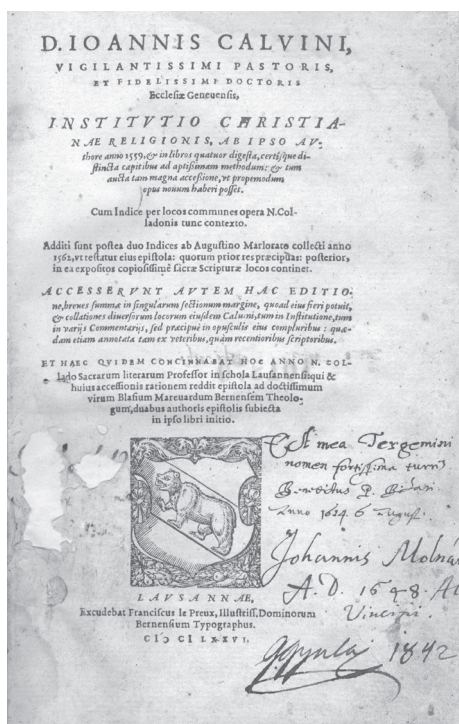 D. IOANNIS CALVINI,
VIGILANTISSIMI PASTORIS,
ET FIDELISSIMI DOCTORIS
Ecclesiæ Geneuensis,
INSTITVTIO CHRISTIA-
NAE RELIGIONIS, AB IPSO AV-
thore anno 1559. & in libros quatuor digesta, certisque di-
stincta capitibus ad aptissimam methodum: & tum
aucta tam magna accessione, vt propemodum
opus nouum haberi posset.
Cum Indice per locos communes opera N. Col-
ladonis tunc contexto.
Additi sunt postea duo Indices ab Augustino Marlorato collecti anno
1562, vt testatur eius epistola: quorum prior res præcipuas: posterior,
in ea expositos copiosissimè sacræ Scripturæ locos continet.
ACCESSERVNT AVTEM HAC EDITIO-
ne, breues summæ in singularum sectionum margine, quoad eius fieri potuit,
& collationes diuersorum locorum eiusdem Caluini, tum in Institutione, tum
in varijs Commentarijs, sed præcipuè in opusculis eius compluribus: quæ-
dam etiam annotata tam ex veteribus, quàm recentioribus scriptoribus.
ET HAEC QVIDEM CONCINNABAT HOC ANNO N. COL-
lado Sacrarum literarum Professor in schola Lausannensi: qui &
huius accessionis rationem reddit epistola ad doctissimum
virum Blasium Marcuardum Bernensem Theolo-
gum, duabus authoris epistolis subiecta
in ipso libri initio.
Est mea Tergemini
nomen fortissima turris
Anno 1624. 6 August.
Johannis Molnár
A. D. 1648.
1842
LAVSANNAE,
Excudebat Franciscus le Preux, Illustriss. Dominorum
Bernensium Typographus.
CIↃ CI LXXVI.